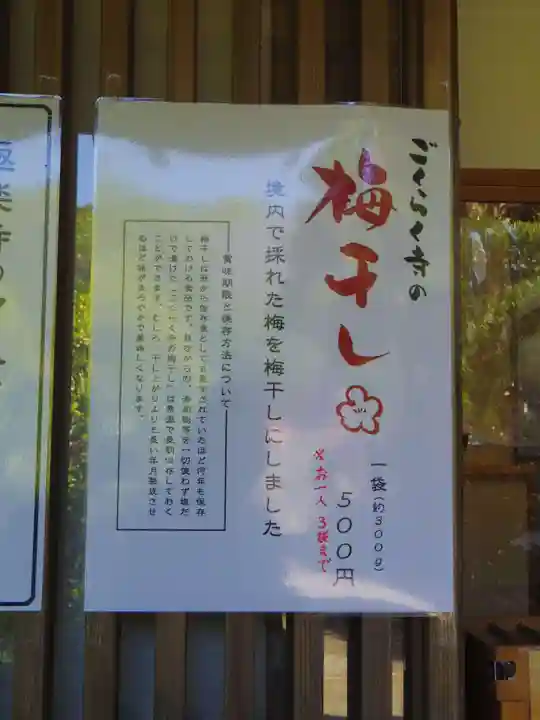 ごくらく寺の
梅干し
一袋(約300g)
500円
※お一人 3袋まで
境内で採れた梅を梅干しにしました
賞味期限と保存方法について
梅干しは昔から保存食として重宝されていたほど何年も保存
しておける食品です。昔ながらの、添加物等を一切使わず塩だ
けで漬けた「ごくらく寺の梅干し」は常温で長期保存しておく
ことができます。むしろ、干し上がりよりも長い年月熟成させ
るほど味がまろやかで美味しくなります。
極楽寺の